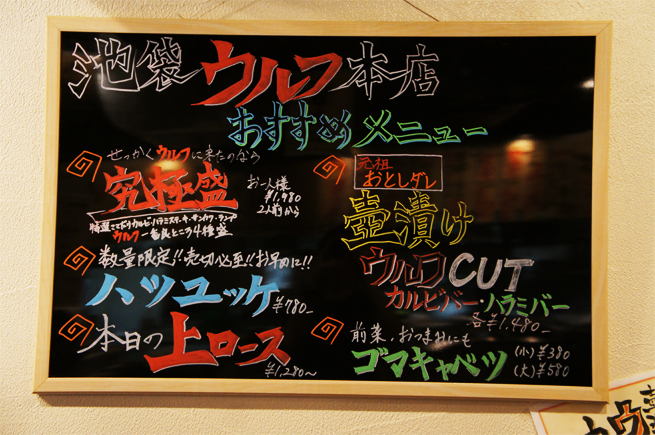 池袋ウルフ本店
おすすめメニュー
せっかくウルフに来たのなら
究極盛
お一人様
¥1,980
2人前から
ウルフ一番良とこ3 4種盛
数量限定!!売切必至!!お早めに!!
ハツユッケ ¥780-
本日の上ロース
¥1,280〜
元祖
おとしダレ
壺漬け
ウルフCUT
カルビバー・ハラミバー
各¥1,480-
前菜、おつまみにも
ゴマキャベツ
(小)¥380
(大)¥580